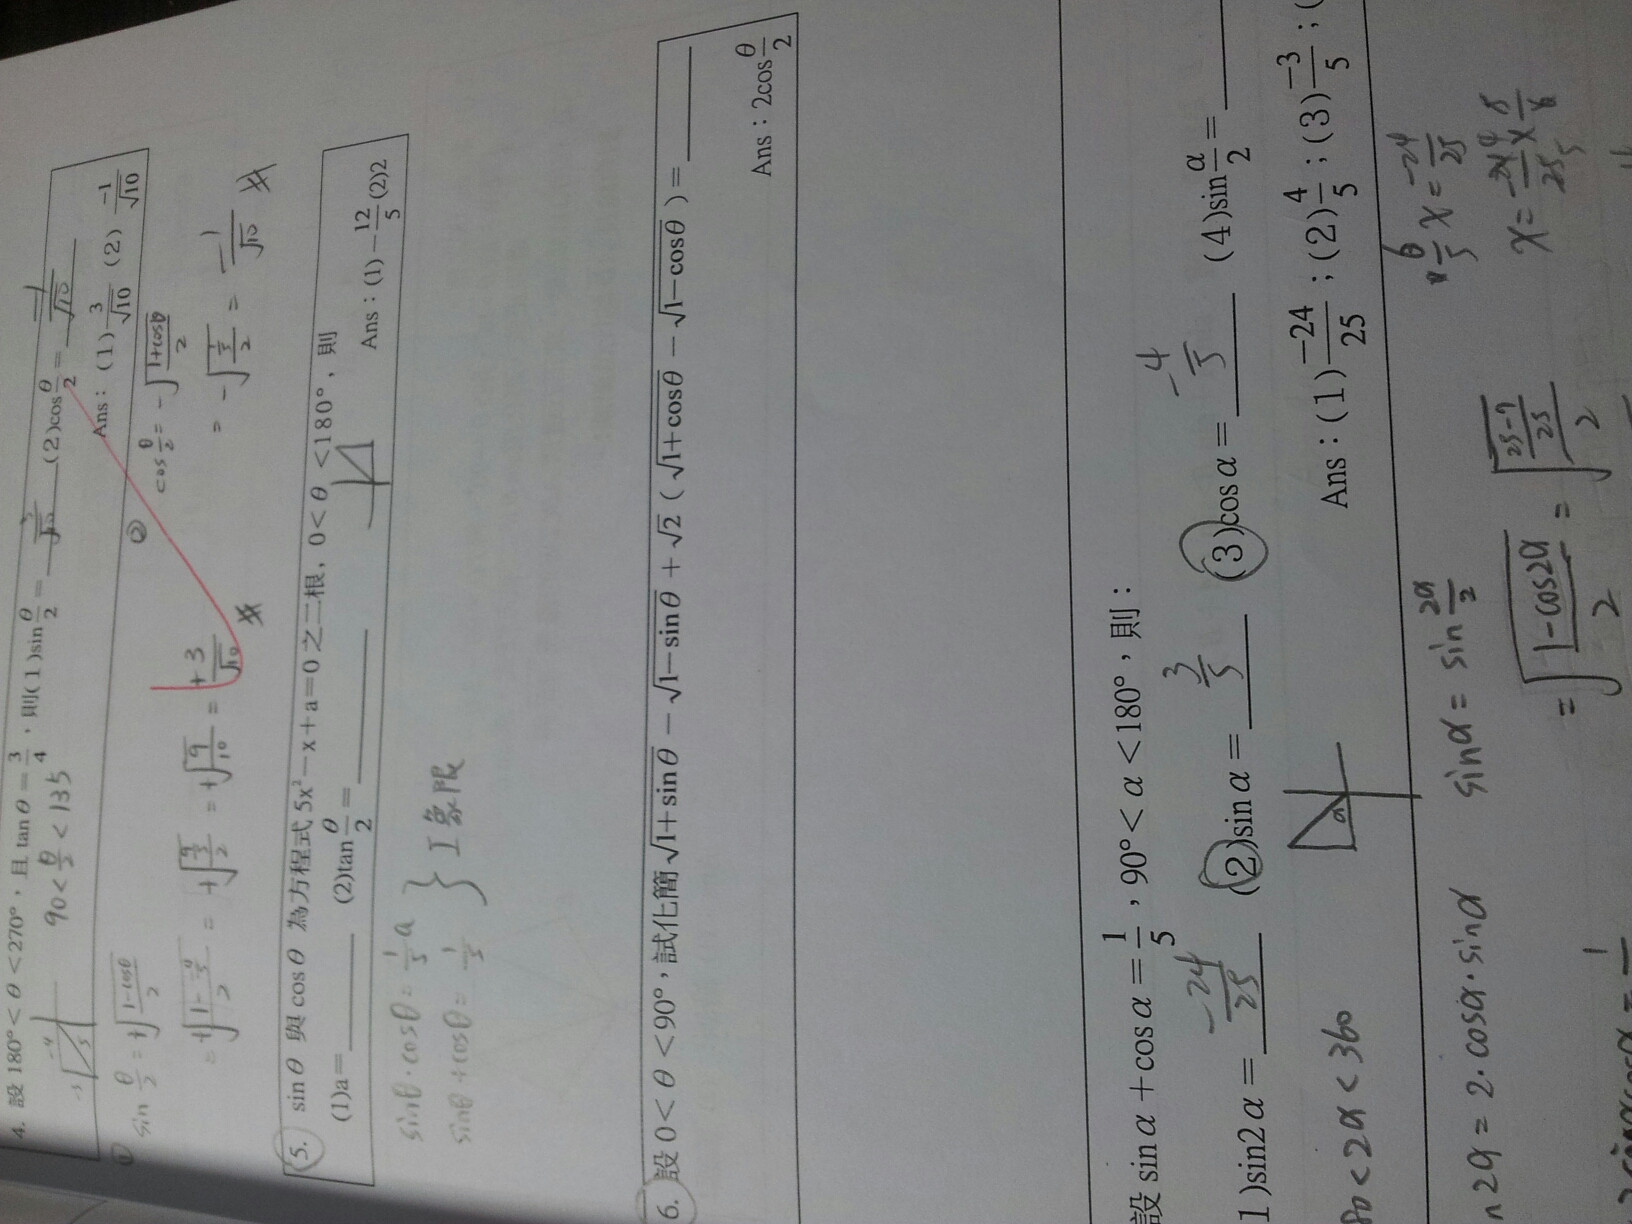 4. 設180°<θ<270°，且 tanθ=3/4，則(1)sin θ/2= 3/√10 (2)cos θ/2= -1/√10
Ans：(1) 3/√10 (2) -1/√10
90<θ/2<135
① sin θ/2 = +√((1-cosθ)/2)
② cos θ/2 = -√((1+cosθ)/2)
= +√(9/10) = +3/√10
= -1/√10
5. sinθ 與 cosθ 為方程式 5x²-x+a=0 之二根，0<θ<180°，則
(1)a= (2)tan θ/2 =
Ans：(1) -12/5 (2)2
sinθ·cosθ = 1/5 a
sinθ+cosθ = 1/5
} I 象限
6. 設 0<θ<90°，試化簡 √(1+sinθ) - √(1-sinθ) + √2 ( √(1+cosθ) - √(1-cosθ) ) =
Ans：2cos θ/2
設 sinα+cosα= 1/5，90°<α<180°，則：
1)sin2α= -24/25 (2)sinα= 3/5 (3)cosα= -4/5 (4)sin α/2 =
Ans：(1) -24/25；(2) 4/5；(3) -3/5；(
80<2α<360
n2α = 2·cosα·sinα
sinα = sin 2α/2
= √((1-cos2α)/2) =
x = -24/25